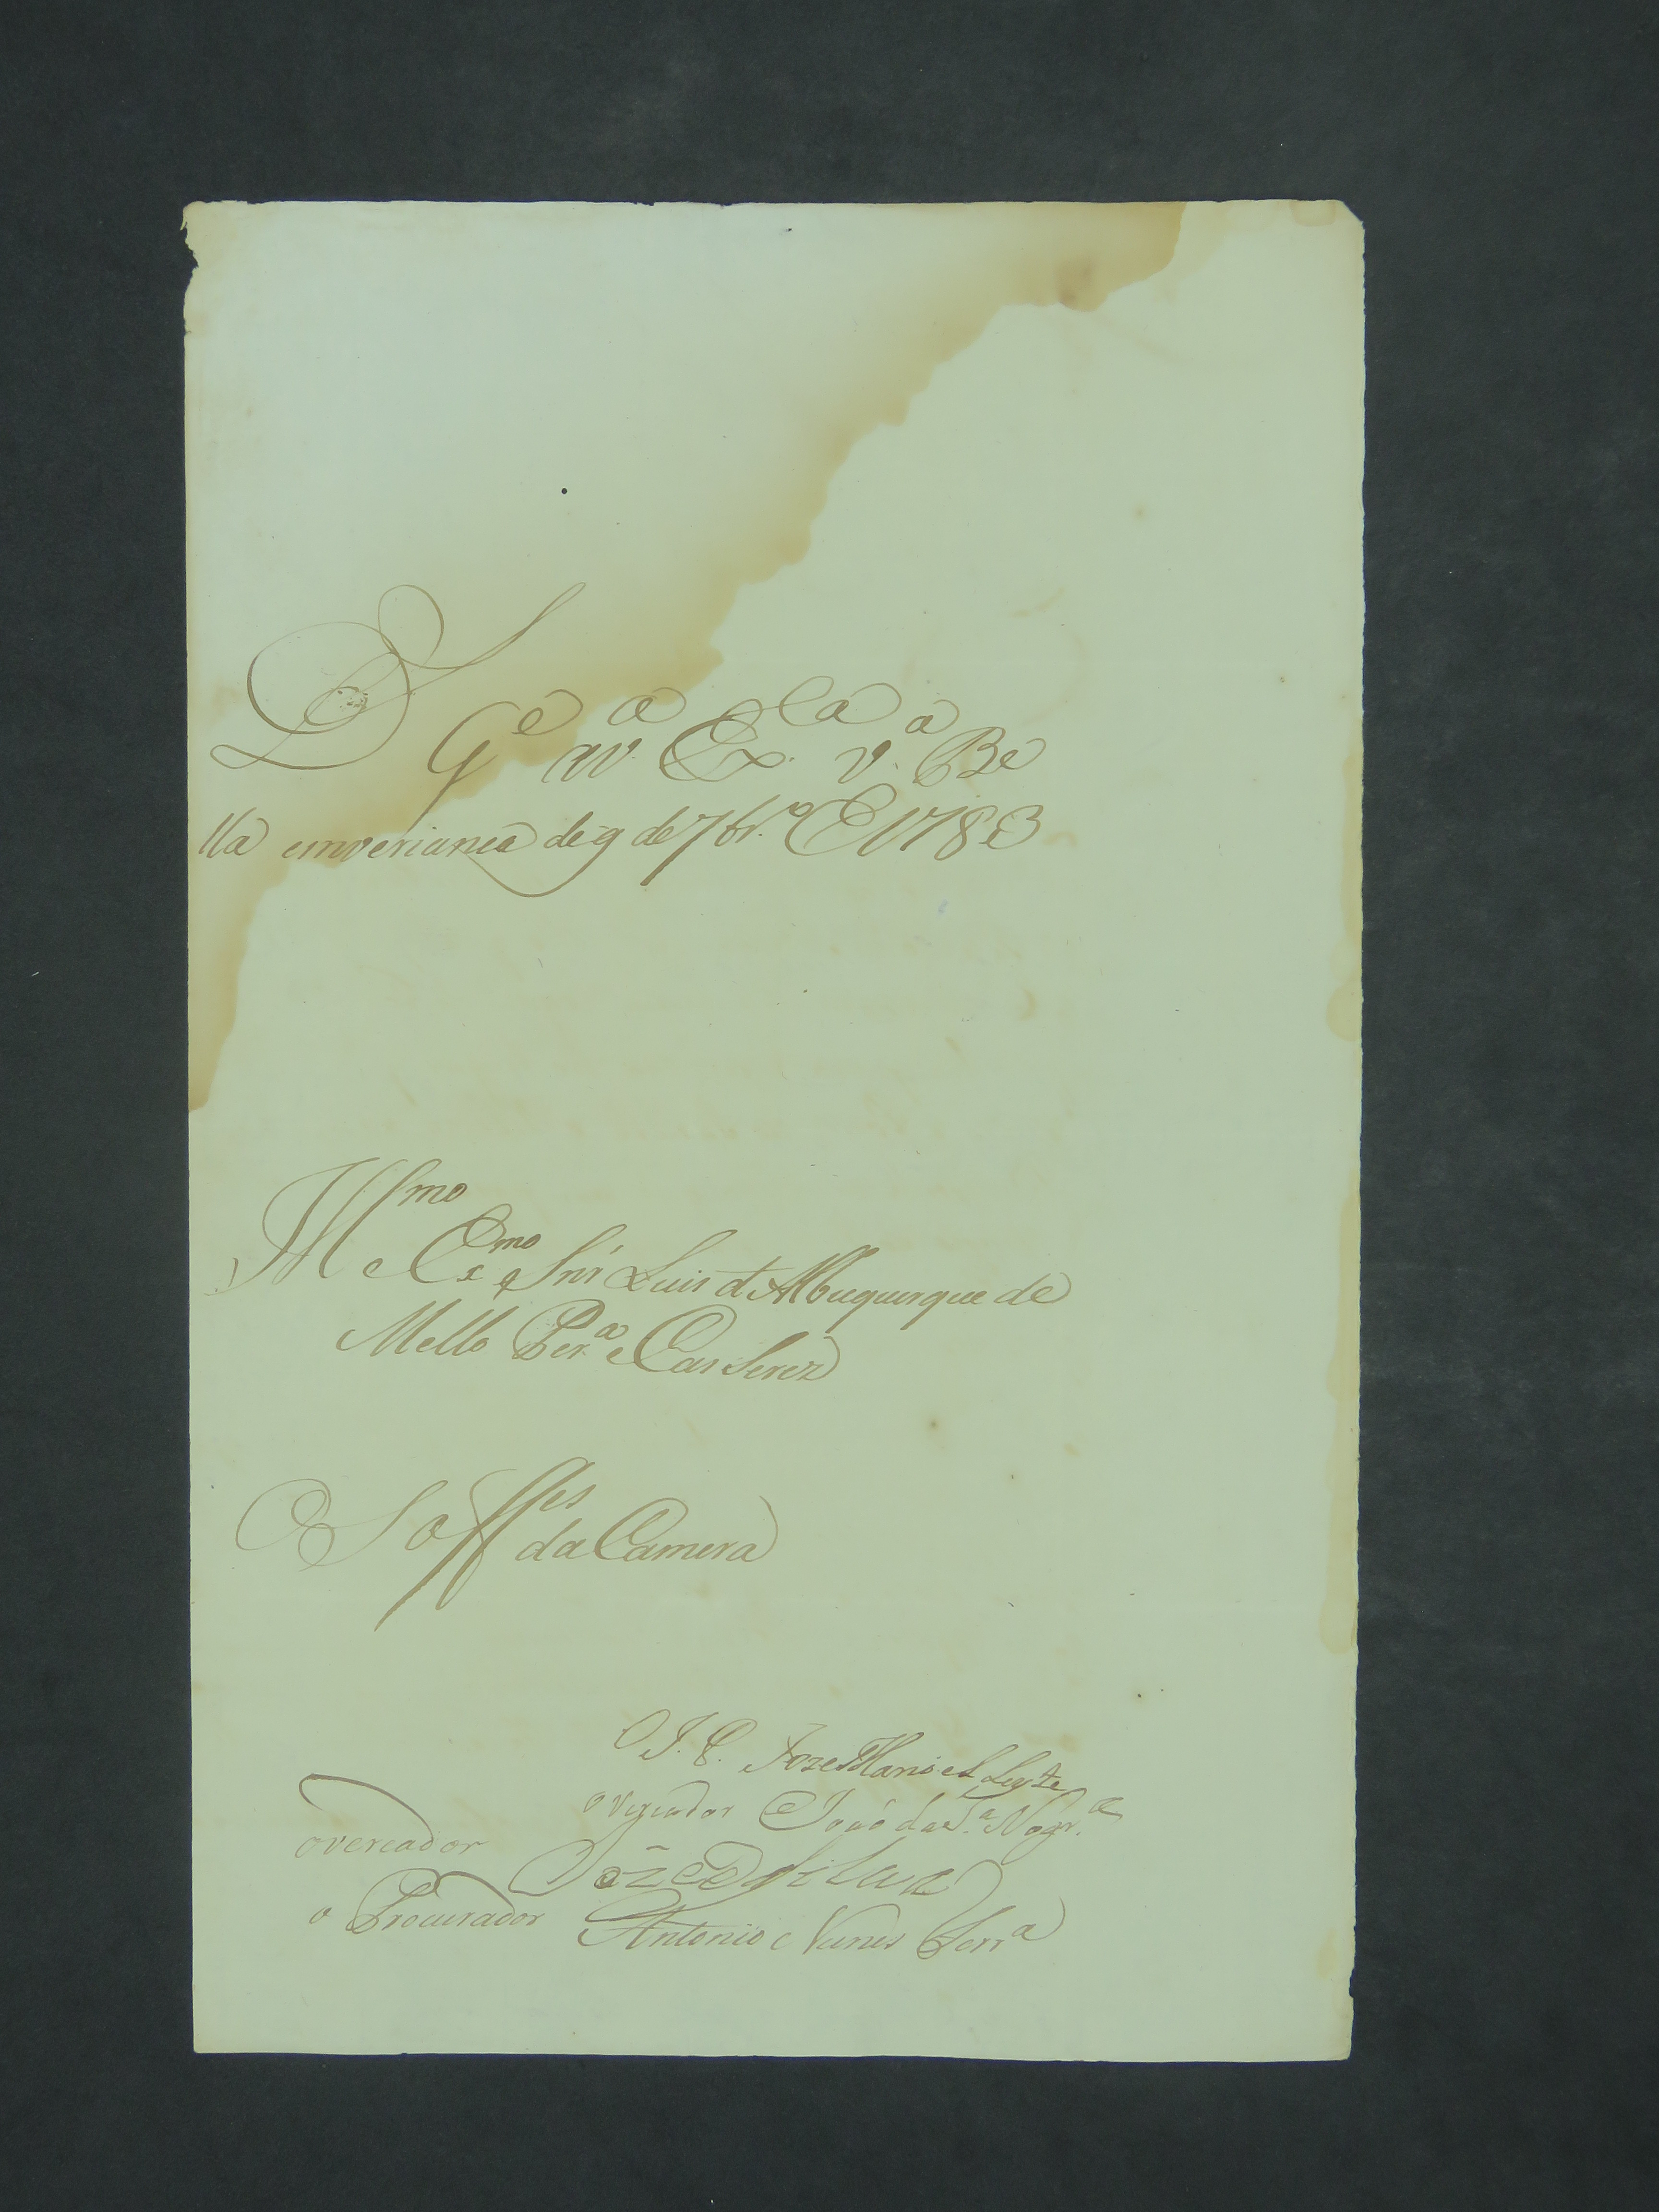 D.s G.e a v. Ex.la v.a Be
lla emverianca de 9 de 7br.o E 1783
Ill.mo e Ex.mo Snr Luis d Albuquerque de
Mello Per.a e Casserez
Os off.es da Camera
O J. P. Joze Manoel Leyte
o Vereador João da S.a Nogr.a
overeador Joze da Silva
o Procurador Antonio Nunes Serr.a